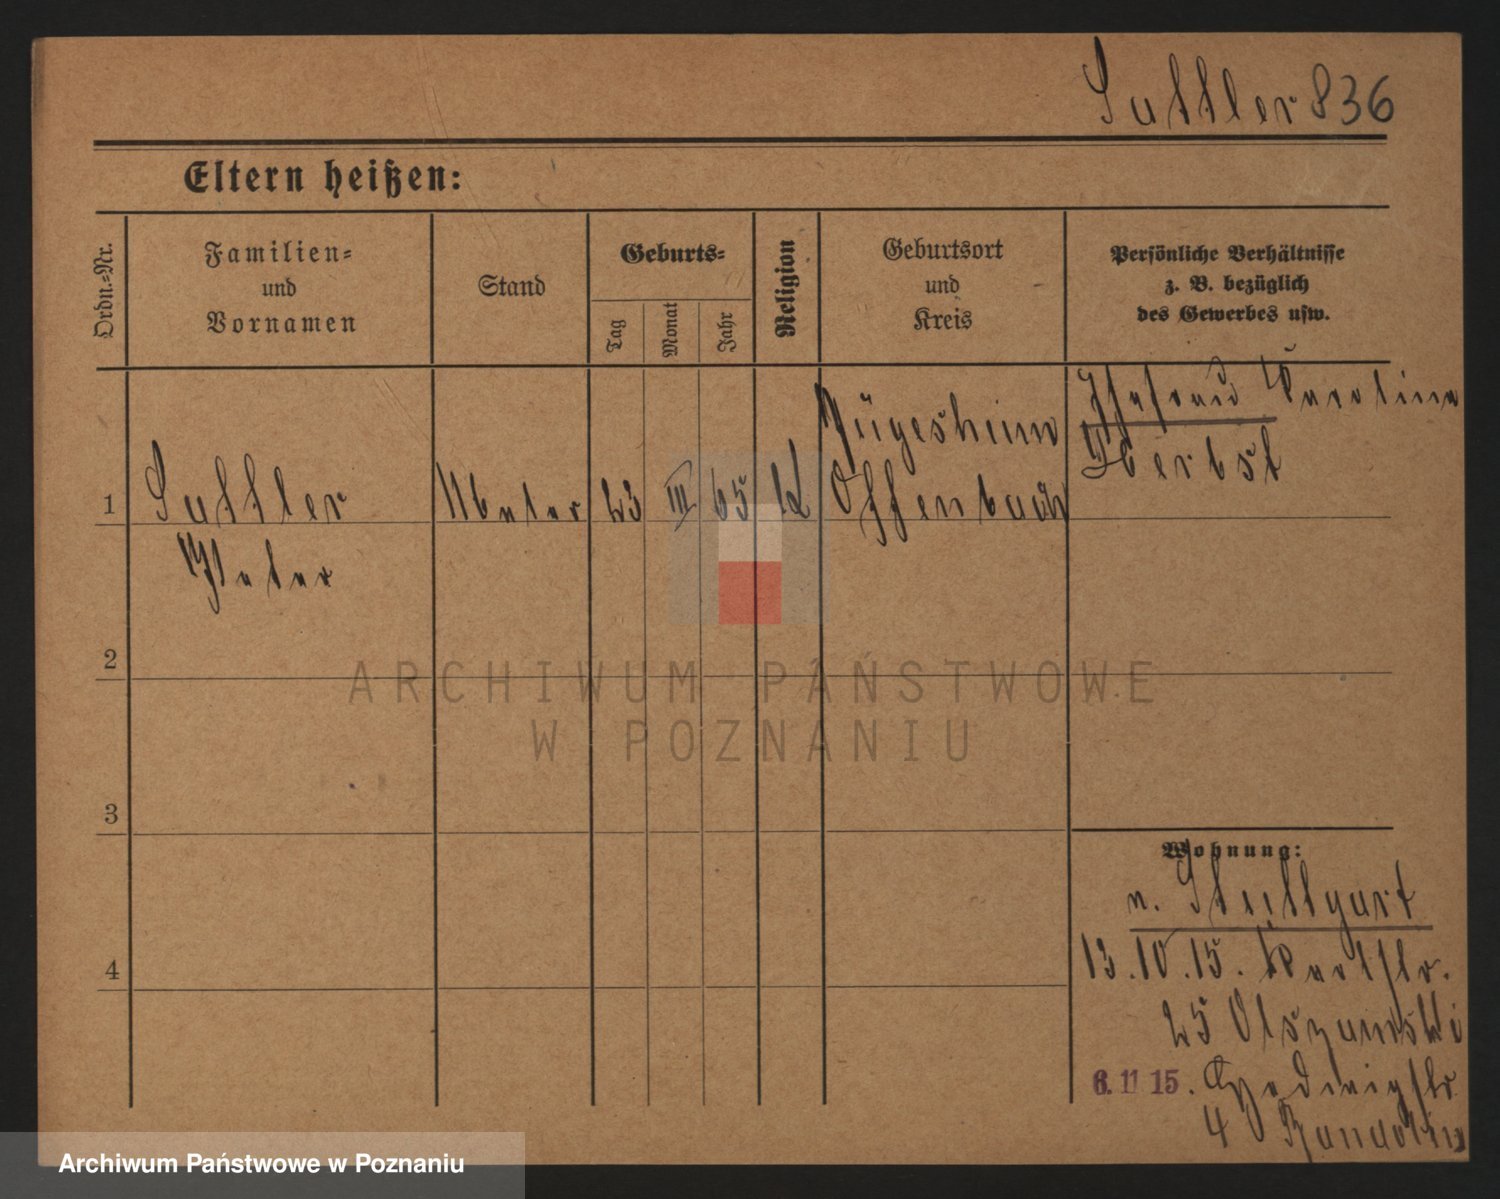 Sattler 836
Eltern heißen:
Ordn.-Nr.
Familien-
und
Vornamen
Stand
Geburts-
Tag
Monat
Jahr
Religion
Geburtsort
und
Kreis
Persönliche Verhältnisse
z. B. bezüglich
des Gewerbes usw.
1
Sattler
Peter
23
III
65
K
Jügesheim
Offenbach
Ehefrau Karoline
Herbst
2
3
4
Wohnung:
n. Stuttgart
13.10.15. Karlstr.
25 Olszanski
6. 11 15. Hedwigstr.
4
ARCHIWUM PAŃSTWOWE
W POZNANIU
Archiwum Państwowe w Poznaniu